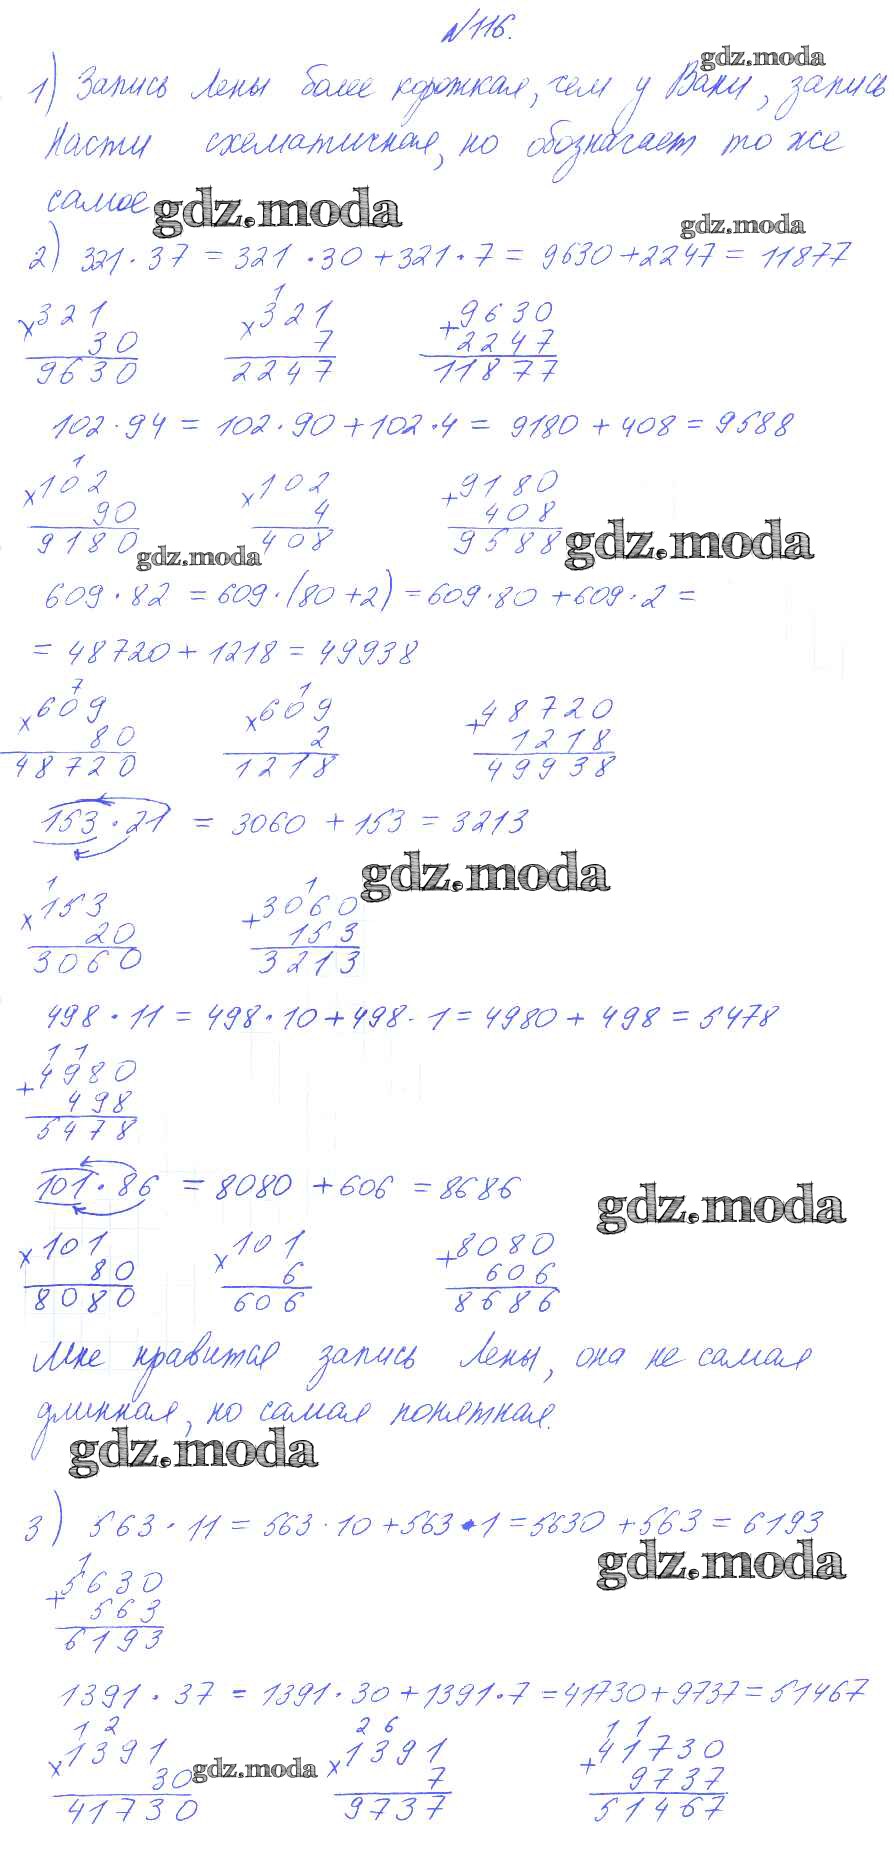 №116.
gdz.moda
1) Запись Лены более короткая, чем у Вани, запись
Насти схематичная, но обозначает то же
самое
gdz.moda
gdz.moda
2) 321·37 = 321·30+321·7 = 9630+2247 = 11877
1
×321 ×321 +9630
30 7 2247
9630 2247 11877
102·94 = 102·90+102·4 = 9180+408 = 9588
1
×102 ×102 +9180
90 4 408
9180 408 9588
gdz.moda gdz.moda
609·82 = 609·(80+2) = 609·80+609·2 =
= 48720+1218 = 49938
7 1
×609 ×609 +48720
80 2 1218
48720 1218 49938
153·21 = 3060+153 = 3213
gdz.moda
1 1
×153 +3060
20 153
3060 3213
498·11 = 498·10+498·1 = 4980+498 = 5478
1 1
+4980
498
5478
101·86 = 8080+606 = 8686
gdz.moda
×101 ×101 +8080
80 6 606
8080 606 8686
Мне нравится запись Лены, она не самая
длинная, но самая понятная.
gdz.moda
3) 563·11 = 563·10+563·1 = 5630+563 = 6193
gdz.moda
1
+5630
563
6193
1391·37 = 1391·30+1391·7 = 41730+9737 = 51467
1 2 2 6 1 1
×1391 ×1391 +41730
30 7 9737
41730 9737 51467
gdz.moda